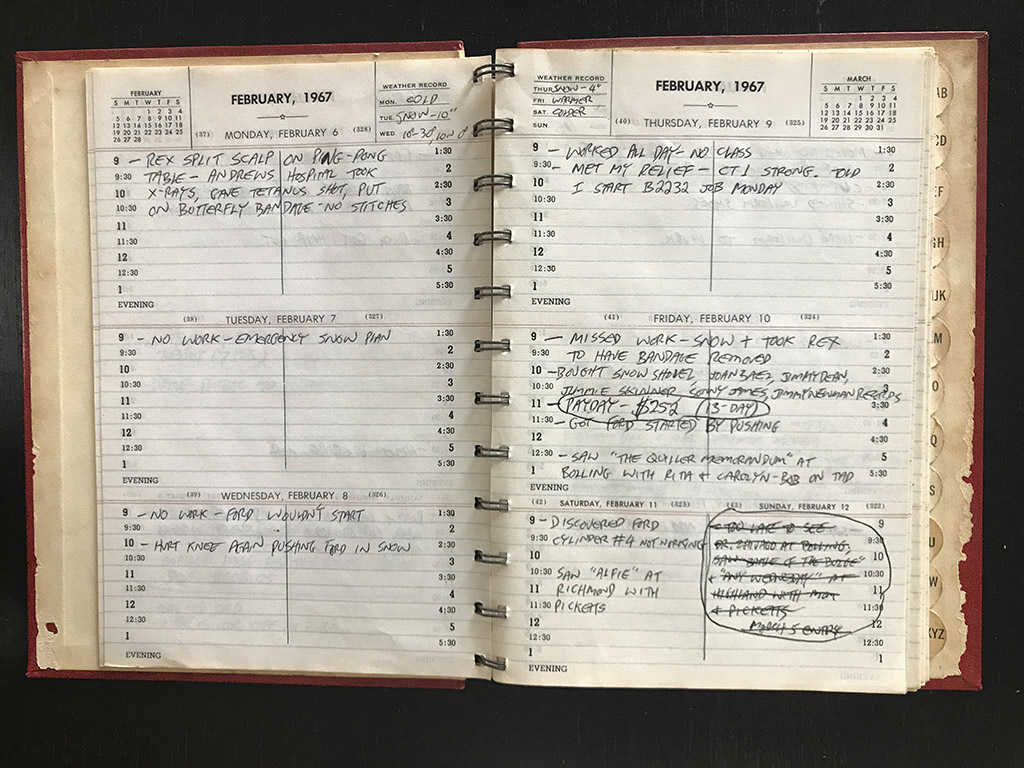 FEBRUARY
S M T W T F S
1 2 3 4
5 6 7 8 9 10 11
12 13 14 15 16 17 18
19 20 21 22 23 24 25
26 27 28
FEBRUARY, 1967
WEATHER RECORD
MON. COLD
TUE. SNOW-10"
WED. 10°-30,
(37) MONDAY, FEBRUARY 6 (328)
9 - REX SPLIT SCALP ON PING-PONG 1:30
9:30 TABLE - ANDREWS HOSPITAL TOOK 2
10 X-RAYS, GAVE TETANUS SHOT, PUT 2:30
10:30 ON BUTTERFLY BANDAGE-NO STITCHES 3
11 3:30
11:30 4
12 4:30
12:30 5
1 5:30
EVENING
(38) TUESDAY, FEBRUARY 7 (327)
9 - NO WORK - EMERGENCY SNOW PLAN 1:30
9:30 2
10 2:30
10:30 3
11 3:30
11:30 4
12 4:30
12:30 5
1 5:30
EVENING
(39) WEDNESDAY, FEBRUARY 8 (326)
9 - NO WORK - FORD WOULDN'T START 1:30
9:30 2
10 - HURT KNEE AGAIN PUSHING FORD IN SNOW 2:30
10:30 3
11 3:30
11:30 4
12 4:30
12:30 5
1 5:30
EVENING
WEATHER RECORD
THUR SNOW-4"
FRI. WARMER
SAT. COLDER
SUN.
FEBRUARY, 1967
MARCH
S M T W T F S
1 2 3 4
5 6 7 8 9 10 11
12 13 14 15 16 17 18
19 20 21 22 23 24 25
26 27 28 29 30 31
(40) THURSDAY, FEBRUARY 9 (325)
9 - WORKED ALL DAY-NO CLASS 1:30
9:30 - MET MY RELIEF - CT1 STRONG. TOLD 2
10 I START B2232 JOB MONDAY 2:30
10:30 3
11 3:30
11:30 4
12 4:30
12:30 5
1 5:30
EVENING
(41) FRIDAY, FEBRUARY 10 (324)
9 - MISSED WORK - SNOW + TOOK REX 1:30
9:30 TO HAVE BANDAGE REMOVED 2
10 - BOUGHT SNOW SHOVEL, JOAN BAEZ, JIMMY DEAN, 2:30
10:30 JIMMIE SKINNER, SONNY JAMES, JIMMY NEWMAN RECORDS 3
11 - PAYDAY - $252 (13-DAY) 3:30
11:30 - GOT FORD STARTED BY PUSHING 4
12 4:30
12:30 - SAW "THE QUILER MEMORANDUM" AT 5
1 BOLLING WITH RITA + CAROLYN-BOB ON TAD 5:30
EVENING
(42) SATURDAY, FEBRUARY 11 (323)
9 - DISCOVERED FORD
9:30 CYLINDER #4 NOT WORKING
10
10:30 SAW "ALFIE" AT
11 RICHMOND WITH
11:30 PICKETTS
12
12:30
1
EVENING
(43) SUNDAY, FEBRUARY 12 (322)
- TOO LATE TO SEE 9
DR. ZHIVAGO AT BOLLING. 9:30
SAW BATTLE OF THE BULGE" 10
+ "ANY WEDNESDAY" AT 10:30
HIGHLAND WITH 11
+ PICKETTS 11:30
MARCH 5 ENTRY 12
12:30
1
AB
CD
EF
GH
IJK
LM
O
Q
S
U
W
XYZ